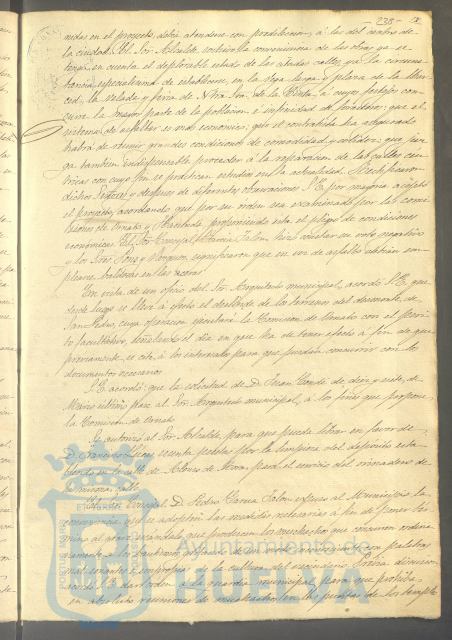 238
nidas en el proyecto, debía atenderse con predilección á las del centro de
la ciudad. El Sor Alcalde sostuvo la conveniencia de las obras ya se
tenga en cuenta el deplorable estado de las citadas calles, ya la circuns-
tancia especialísima de establecerse en la Vega larga y plaza de la Mer-
ced, la velada y feria de Ntra Sra de la Cinta, á cuyos festejos con-
curre la mayor parte de la población é infinidad de forasteros: que el
sistema de asfalto es más económico; que el contratista ha asegurado
habrá de reunir grandes condiciones de comodidad y solidez: que juz-
ga tambien indispensable proceder á la reparacion de las calles cen-
tricas con cuyo fin se practican estudios en la actualidad. Rectificaron
dichos Señores y despues de diferentes observaciones S.E. por mayoria aceptó
el proyecto, acordando que por su orden sea examinado por las comi-
siones de Ornato y Hacienda, proponiendo esta el pliego de condiciones
económicas. El Sor Concejal García Jalon hizo constar su voto negativo
y los Sres Pons y Vazquez, significaron que en vez de asfalto debían em-
plearse baldosas en las aceras.
En vista de un oficio del Sor Arquitecto municipal, acordó S.E. que
desde luego se lleve á efecto el deslinde de los terrenos del
San Pedro, cuya operacion ejecutará la Comision de Ornato con el peri-
to facultativo, señalando el dia en que ha de tener efecto á fin de que
previamente, se cite, á los interesados para que puedan concurrir con los
documentos necesarios.
S.E. acordó: que la solicitud de D. Juan Conde de diez y siete de
Marzo último pase al Sor Arquitecto municipal, á los fines que propone
la Comision de Ornato.
Se autorizó al Sor Alcalde, para que pueda librar en favor de
D. Francisco pesetas por la limpieza del depósito esta-
blecido en la calle de Alonso de Mora para el servicio del urinario de
dicha calle.
El Sor Concejal D. Pedro García Jalon expuso al Municipio la
conveniencia que se adopten las medidas necesarias á fin de poner tér-
mino al grave escándalo que producen los muchachos que concurren ordena-
damente á los bautizos
mal sonantes é impropias de la cultura del vecindario.
acordó de dar orden á la guardia municipal para que prohiba
en absoluto reuniones de muchachos en las puertas de los templos
Ayuntamiento de
HUELVA